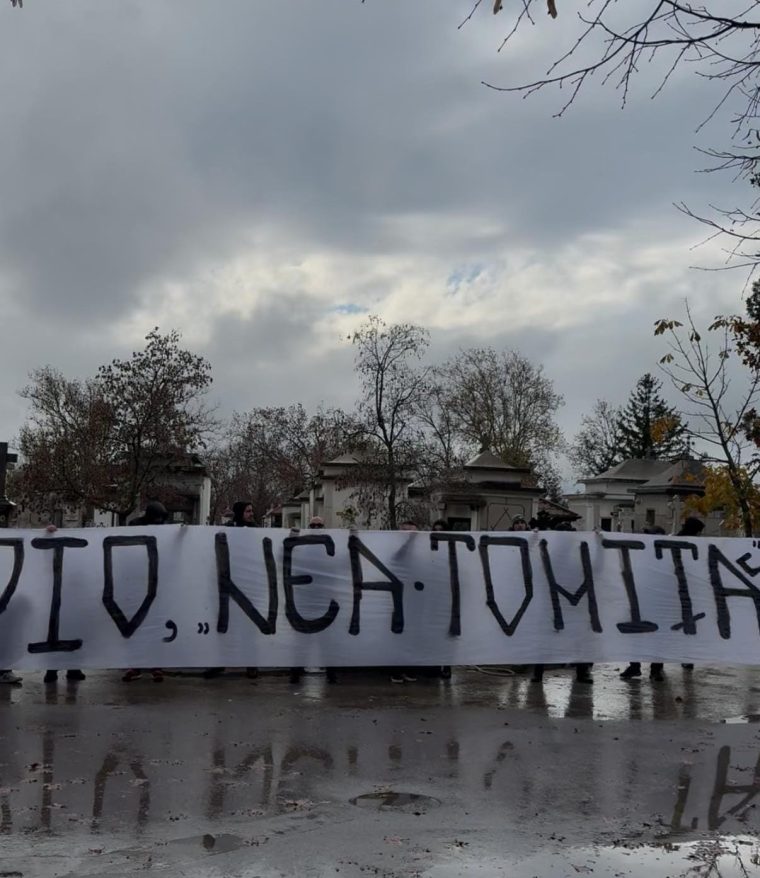 DIO, „NEA·TOMIȚĂ”